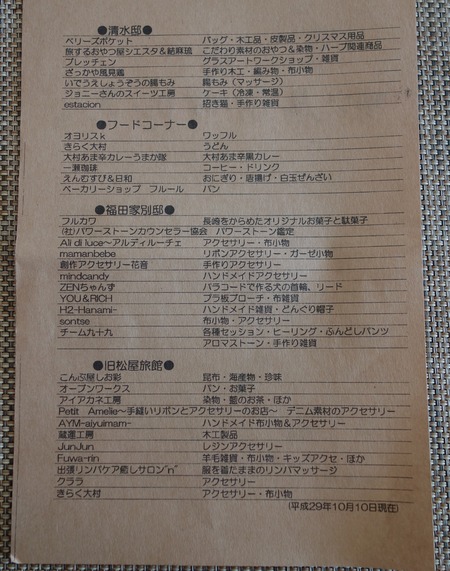 ●清水邸●
ベリーズポケット　バッグ・木工品・皮製品・クリスマス用品
旅するおやつ屋シエスタ&結麻琉　こだわり素材のおやつ&染物・ハーブ関連商品
ブレッチェン　グラスアートワークショップ・雑貨
ざっかや風見鶏　手作り木工・編み物・布小物
いでうえしょうぞうの腸もみ　腸もみ（マッサージ）
ジョニーさんのスイーツ工房　ケーキ（冷凍・常温）
estacion　招き猫・手作り雑貨
●フードコーナー●
オヨリスk　ワッフル
きらく大村　うどん
大村あま辛カレーうまか隊　大村あま辛黒カレー
一瀬珈琲　コーヒー・ドリンク
えんむすび&日和　おにぎり・唐揚げ・白玉ぜんざい
ベーカリーショップ　フルール　パン
●福田家別邸●
フルカワ　長崎をからめたオリジナルお菓子と駄菓子
(社)パワーストーンカウンセラー協会　パワーストーン鑑定
Ali di luce～アルディルーチェ　アクセサリー・布小物
mamanbebe　リボンアクセサリー・ガーゼ小物
創作アクセサリー花音　手作りアクセサリー
mindcandy　ハンドメイドアクセサリー
ZENちゃんず　パラコードで作る犬の首輪、リード
YOU&RICH　プラ板ブローチ・布雑貨
H2-Hanami-　ハンドメイド雑貨・どんぐり帽子
sontse　布小物・アクセサリー
チーム九十九　各種セッション・ヒーリング・ふんどしパンツ
アロマストーン・手作り雑貨
●旧松屋旅館●
こんぶ屋しお彩　昆布・海産物・珍味
オープンワークス　パン・お菓子
アイアカネ工房　染物・藍のお茶・ほか
Petit　Amelie～手縫いリボンとアクセサリーのお店～　デニム素材のアクセサリー
AYM-aiyuimam-　ハンドメイド布小物&アクセサリー
蔵運工房　木工製品
JunJun　レジンアクセサリー
Fuwa-rin　羊毛雑貨・布小物・キッズアクセ・ほか
出張リンパケア癒しサロン"n"　服を着たままのリンパマッサージ
クララ　アクセサリー
きらく大村　アクセサリー・布小物
（平成29年10月10日現在）